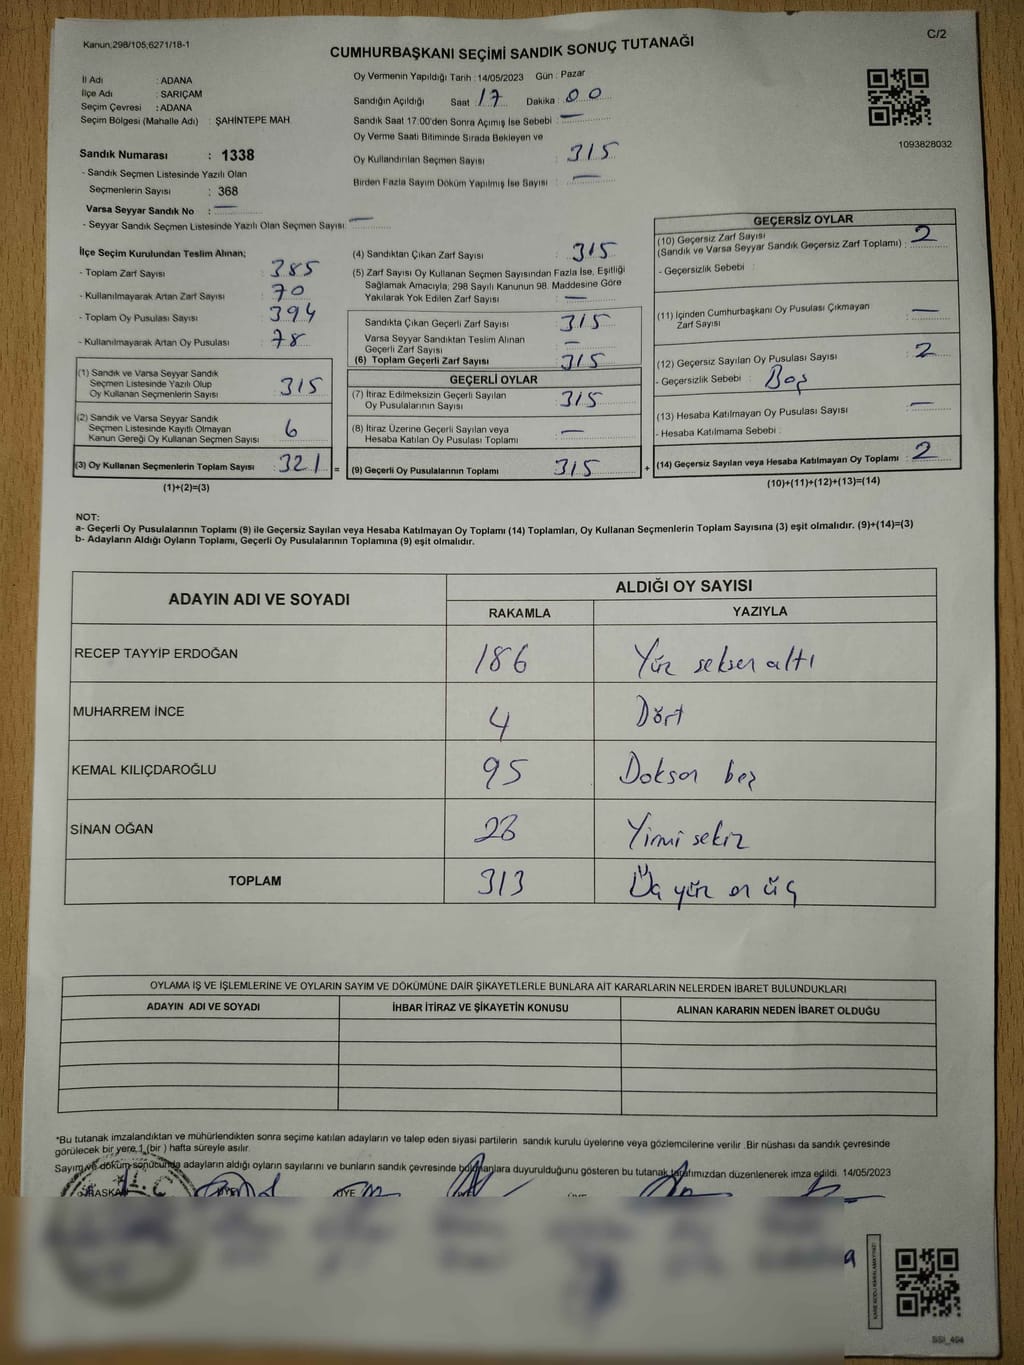 Kanun;298/105;6271/18-1
C/2
CUMHURBAŞKANI SEÇİMİ SANDIK SONUÇ TUTANAĞI
İl Adı : ADANA
İlçe Adı : SARIÇAM
Seçim Çevresi : ADANA
Seçim Bölgesi (Mahalle Adı) : ŞAHİNTEPE MAH.
Oy Vermenin Yapıldığı Tarih : 14/05/2023 Gün : Pazar
Sandığın Açıldığı Saat 17 Dakika : 00
Sandık Saat 17:00'den Sonra Açımış İse Sebebi : —
Oy Verme Saati Bitiminde Sırada Bekleyen ve
Oy Kullandırılan Seçmen Sayısı : 315
Birden Fazla Sayım Döküm Yapılmış İse Sayısı : —
1093828032
Sandık Numarası : 1338
- Sandık Seçmen Listesinde Yazılı Olan
Seçmenlerin Sayısı : 368
Varsa Seyyar Sandık No : —
- Seyyar Sandık Seçmen Listesinde Yazılı Olan Seçmen Sayısı: —
İlçe Seçim Kurulundan Teslim Alınan;
- Toplam Zarf Sayısı : 385
- Kullanılmayarak Artan Zarf Sayısı : 70
- Toplam Oy Pusulası Sayısı : 394
- Kullanılmayarak Artan Oy Pusulası : 78
(1) Sandık ve Varsa Seyyar Sandık
Seçmen Listesinde Yazılı Olup
Oy Kullanan Seçmenlerin Sayısı : 315
(2) Sandık ve Varsa Seyyar Sandık
Seçmen Listesinde Kayıtlı Olmayan
Kanun Gereği Oy Kullanan Seçmen Sayısı : 6
(3) Oy Kullanan Seçmenlerin Toplam Sayısı : 321 =
(1)+(2)=(3)
(4) Sandıktan Çıkan Zarf Sayısı : 315
(5) Zarf Sayısı Oy Kullanan Seçmen Sayısından Fazla İse, Eşitliği
Sağlamak Amacıyla; 298 Sayılı Kanunun 98. Maddesine Göre
Yakılarak Yok Edilen Zarf Sayısı : —
Sandıkta Çıkan Geçerli Zarf Sayısı : 315
Varsa Seyyar Sandıktan Teslim Alınan
Geçerli Zarf Sayısı : —
(6) Toplam Geçerli Zarf Sayısı : 315
GEÇERLİ OYLAR
(7) İtiraz Edilmeksizin Geçerli Sayılan
Oy Pusulalarının Sayısı : 315
(8) İtiraz Üzerine Geçerli Sayılan veya
Hesaba Katılan Oy Pusulası Toplamı : —
(9) Geçerli Oy Pusulalarının Toplamı : 315 +
GEÇERSİZ OYLAR
(10) Geçersiz Zarf Sayısı
(Sandık ve Varsa Seyyar Sandık Geçersiz Zarf Toplamı) : 2
- Geçersizlik Sebebi :
(11) İçinden Cumhurbaşkanı Oy Pusulası Çıkmayan
Zarf Sayısı : —
(12) Geçersiz Sayılan Oy Pusulası Sayısı : 2
- Geçersizlik Sebebi : Boş
(13) Hesaba Katılmayan Oy Pusulası Sayısı : —
- Hesaba Katılmama Sebebi :
(14) Geçersiz Sayılan veya Hesaba Katılmayan Oy Toplamı : 2
(10)+(11)+(12)+(13)=(14)
NOT:
a- Geçerli Oy Pusulalarının Toplamı (9) ile Geçersiz Sayılan veya Hesaba Katılmayan Oy Toplamı (14) Toplamları, Oy Kullanan Seçmenlerin Toplam Sayısına (3) eşit olmalıdır. (9)+(14)=(3)
b- Adayların Aldığı Oyların Toplamı, Geçerli Oy Pusulalarının Toplamına (9) eşit olmalıdır.
ADAYIN ADI VE SOYADI ALDIĞI OY SAYISI
RAKAMLA YAZIYLA
RECEP TAYYİP ERDOĞAN 186 Yüz seksen altı
MUHARREM İNCE 4 Dört
KEMAL KILIÇDAROĞLU 95 Doksan beş
SİNAN OĞAN 28 Yirmi sekiz
TOPLAM 313 Üç yüz on üç
OYLAMA İŞ VE İŞLEMLERİNE VE OYLARIN SAYIM VE DÖKÜMÜNE DAİR ŞİKAYETLERLE BUNLARA AİT KARARLARIN NELERDEN İBARET BULUNDUKLARI
ADAYIN ADI VE SOYADI İHBAR İTİRAZ VE ŞİKAYETİN KONUSU ALINAN KARARIN NEDEN İBARET OLDUĞU
*Bu tutanak imzalandıktan ve mühürlendikten sonra seçime katılan adayların ve talep eden siyasi partilerin sandık kurulu üyelerine veya gözlemcilerine verilir .Bir nüshası da sandık çevresinde
görülecek bir yere 1 (bir ) hafta süreyle asılır.
Sayım ve döküm sonucunda adayların aldığı oyların sayılarını ve bunların sandık çevresinde bulunanlara duyurulduğunu gösteren bu tutanak tarafımızdan düzenlenerek imza edildi. 14/05/2023
BAŞKAN ÜYE ÜYE
T.C
SSI_404